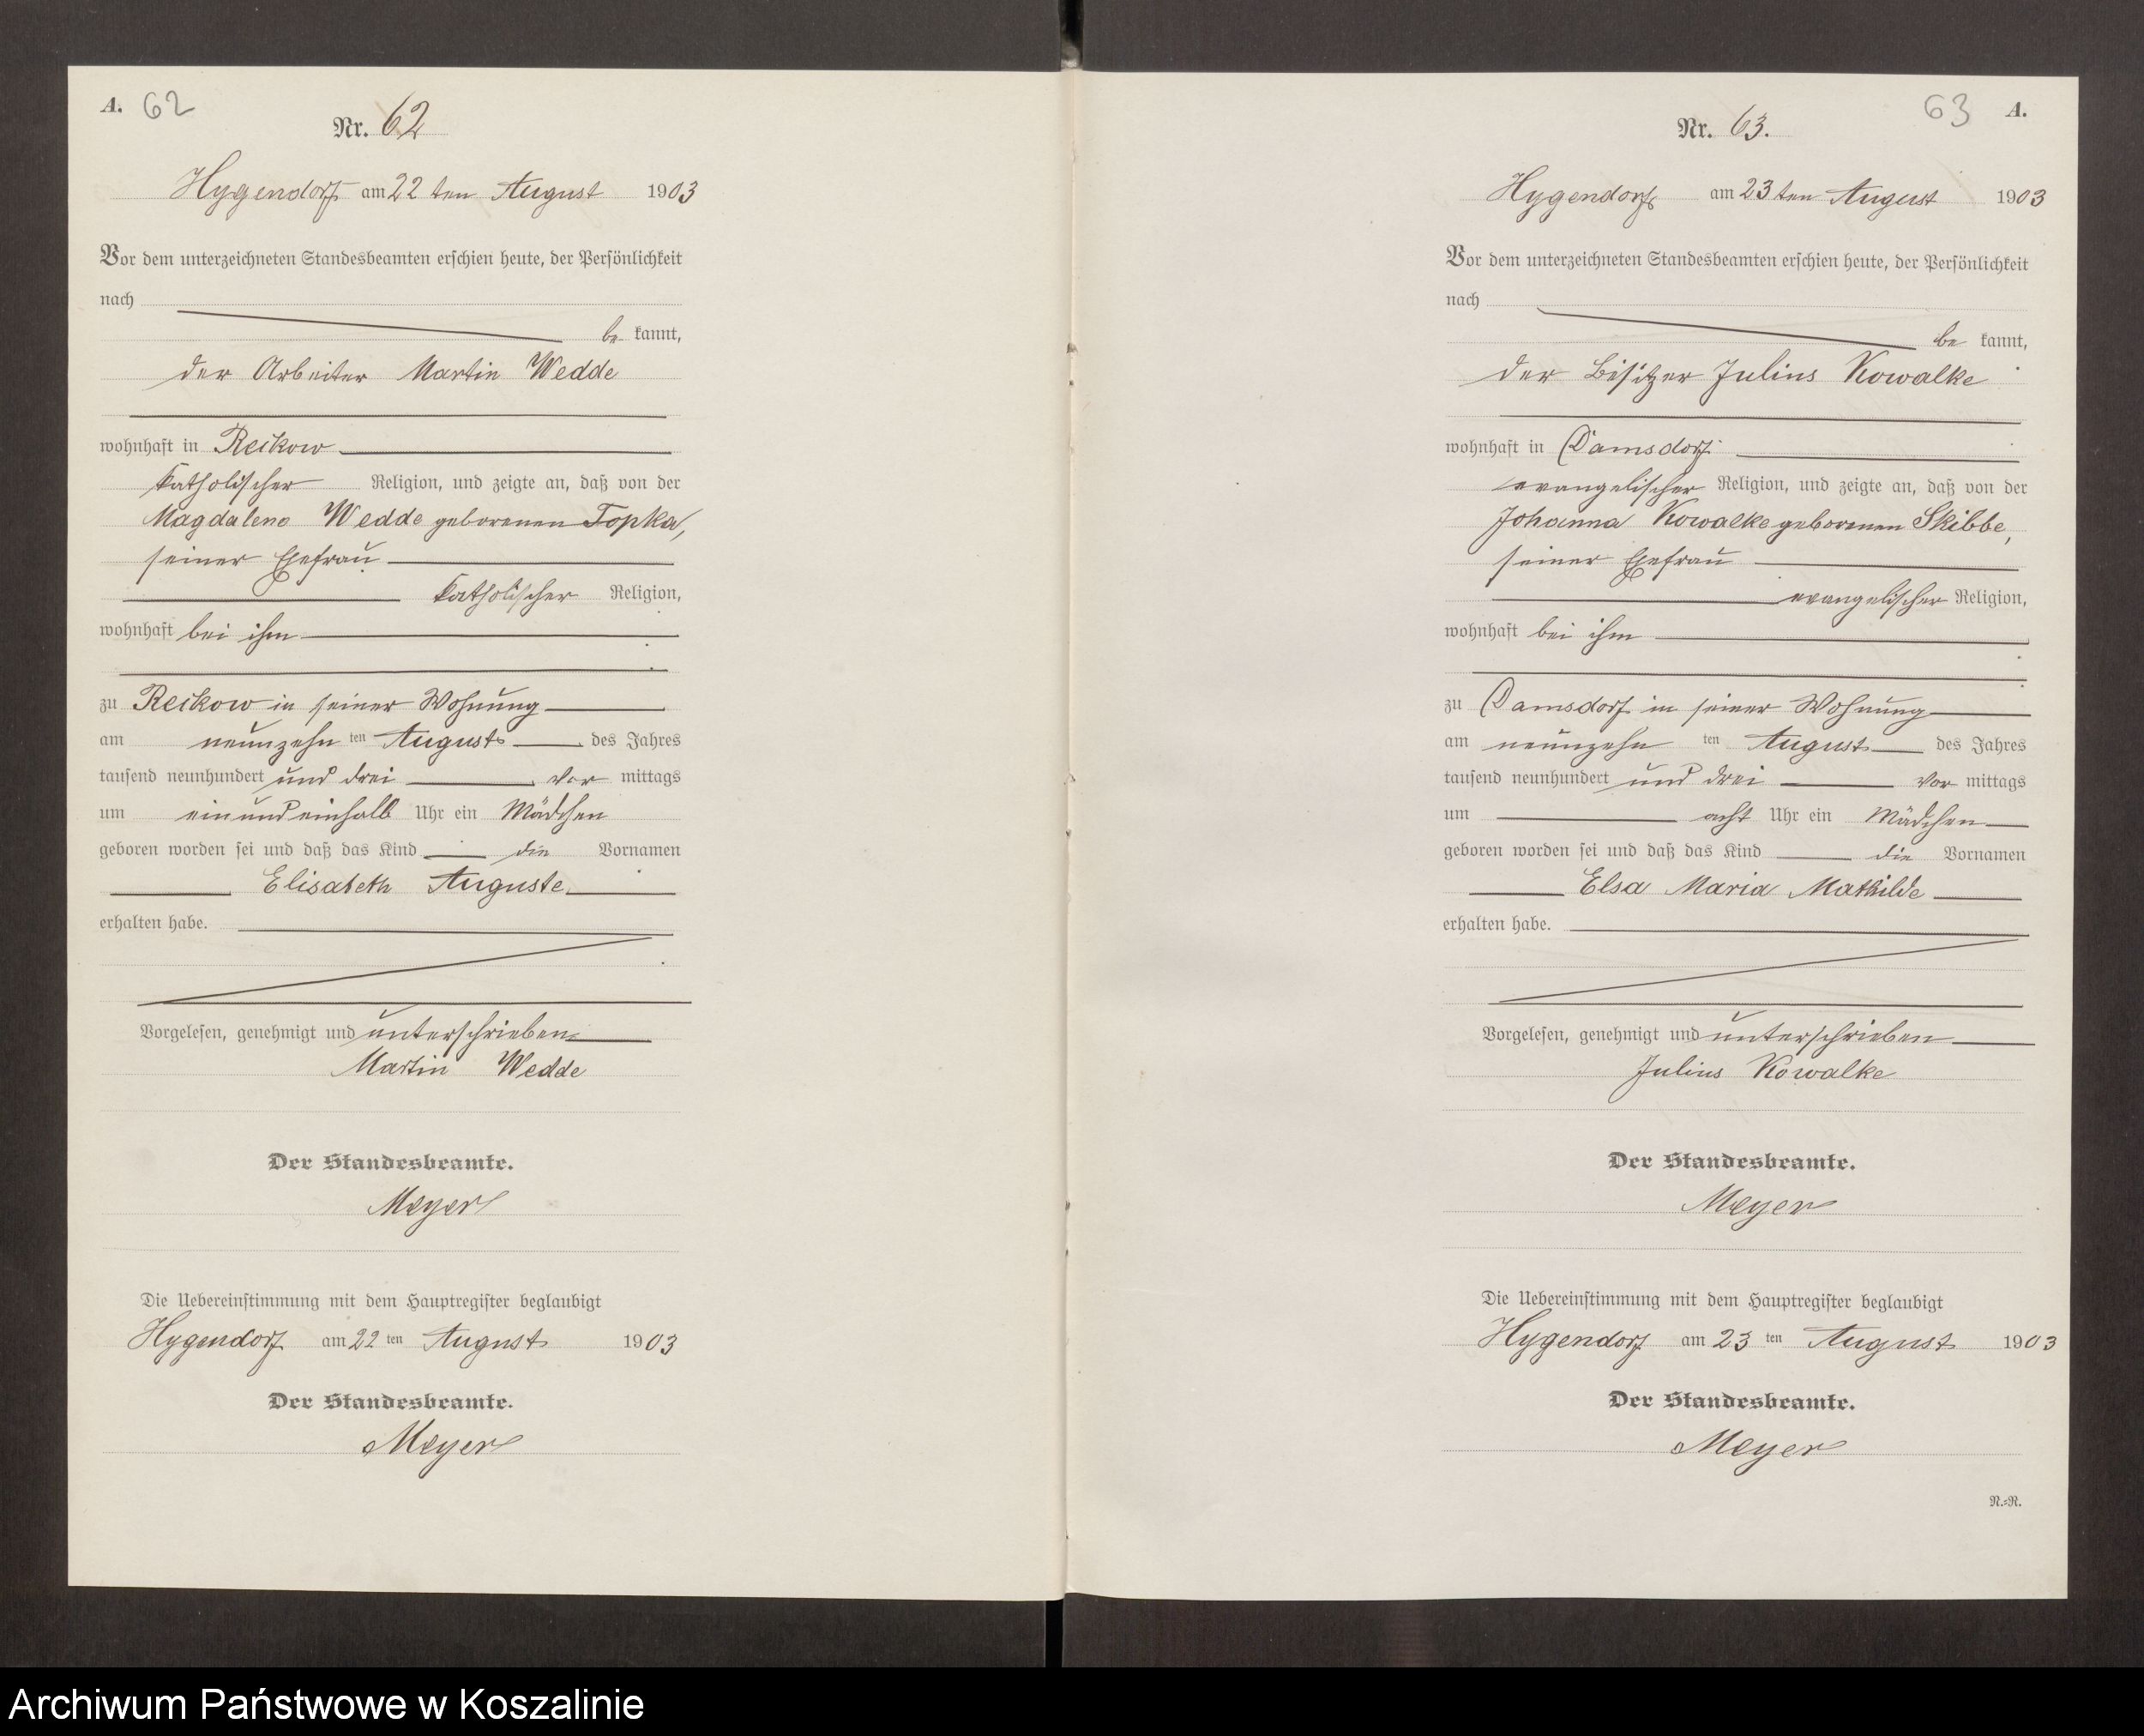 A. 62
Nr. 62
Hygendorf am 22 ten August 1903
Vor dem unterzeichneten Standesbeamten erschien heute, der Persönlichkeit
nach
be kannt,
der Arbeiter Martin Wedde
wohnhaft in Reckow
katholischer Religion, und zeigte an, daß von der
Magdalene Wedde geborenen Topka,
seiner Ehefrau
katholischer Religion,
wohnhaft bei ihm
zu Reckow in seiner Wohnung
am neunzehn ten August des Jahres
tausend neunhundert und drei vor mittags
um ein und einhalb Uhr ein Mädchen
geboren worden sei und daß das Kind die Vornamen
Elisabeth Auguste
erhalten habe.
Vorgelesen, genehmigt und unterschrieben
Martin Wedde
Der Standesbeamte.
Meyer
Die Uebereinstimmung mit dem Hauptregister beglaubigt
Hygendorf am 22 ten August 1903
Der Standesbeamte.
Meyer
63 A.
Nr. 63.
Hygendorf am 23 ten August 1903
Vor dem unterzeichneten Standesbeamten erschien heute, der Persönlichkeit
nach
be kannt,
der Besitzer Julius Kowalke
wohnhaft in Damsdorf
evangelischer Religion, und zeigte an, daß von der
Johanna Kowalke geborenen Skibbe,
seiner Ehefrau
evangelischer Religion,
wohnhaft bei ihm
zu Damsdorf in seiner Wohnung
am neunzehn ten August des Jahres
tausend neunhundert und drei vor mittags
um acht Uhr ein Mädchen
geboren worden sei und daß das Kind die Vornamen
Elsa Maria Mathilde
erhalten habe.
Vorgelesen, genehmigt und unterschrieben
Julius Kowalke
Der Standesbeamte.
Meyer
Die Uebereinstimmung mit dem Hauptregister beglaubigt
Hygendorf am 23 ten August 1903
Der Standesbeamte.
Meyer
N.=R.
Archiwum Państwowe w Koszalinie